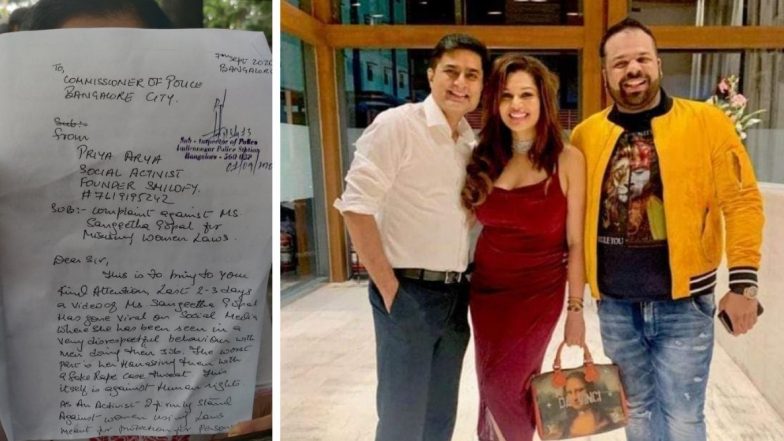 7th SEPT 2020
BANGALORE
To,
COMMISSIONER OF POLICE
BANGALORE CITY.
Sub:-
From
PRIYA ARYA
SOCIAL ACTIVIST
FOUNDER SMILOFY.
#7619195242
Sub-Inspector of Police
Indiranagar Police Station
Bangalore - 560 038
SUB:- Complaint against MS.
Sangeetha Gopal for
Misusing Women Laws.
Dear Sir,
This is to bring to your
kind Attention, Last 2-3 days
a video of Ms Sangeetha Gopal
Has gone viral on Social Media
Where she has been seen in a
very disrespectful behaviour with
men doing their Job. The worst
part is her Harassing them with
a fake Rape case threat. This
itself is against Human rights
As An Activist I firmly stand
Against women using Laws
meant for protection for Person
DA VINCI